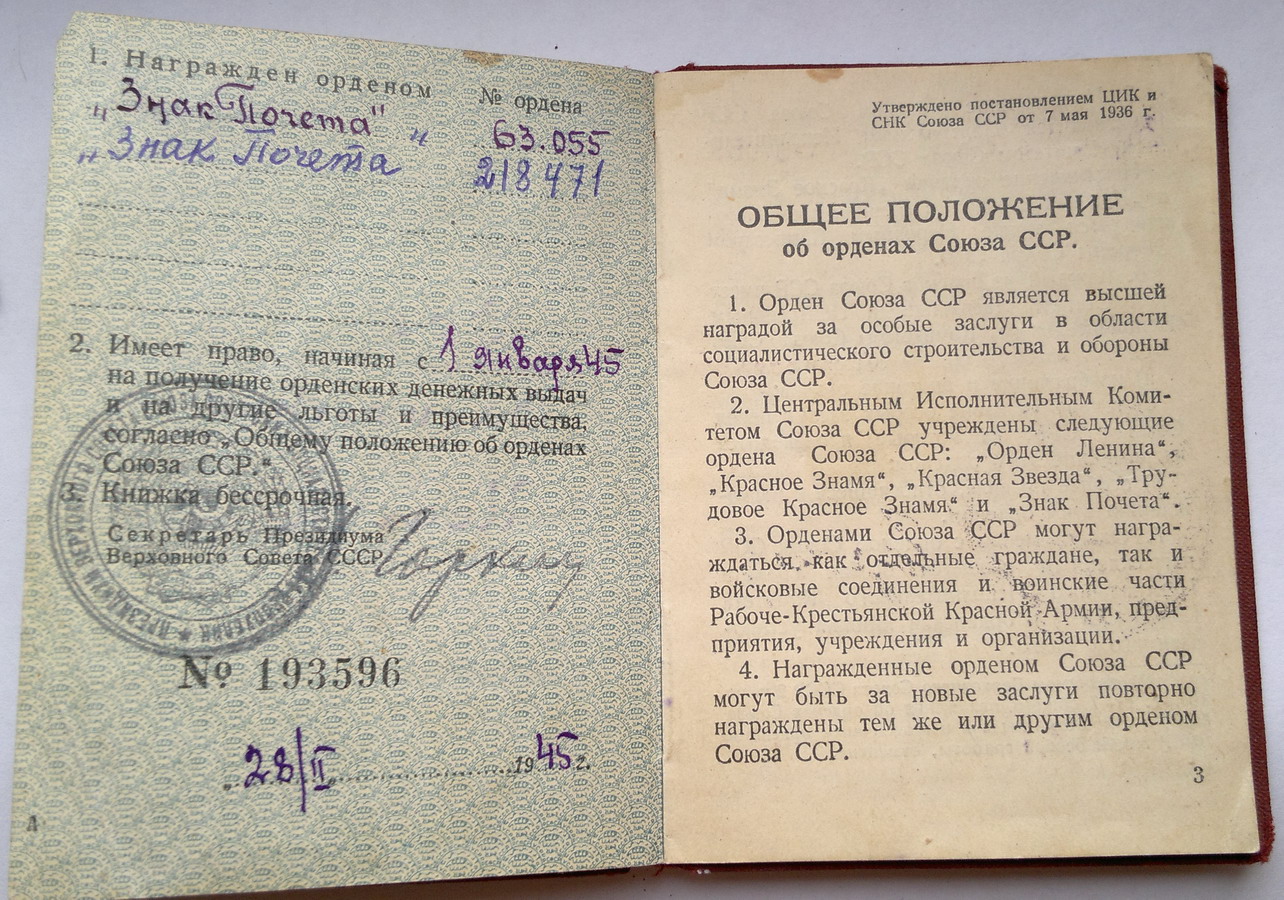 1. Награжден орденом № ордена
„Знак Почета" 63.055
„Знак Почета" 218471
2. Имеет право, начиная с 1 января 45
на получение орденских денежных выдач
и на другие льготы и преимущества,
согласно „Общему положению об орденах
Союза ССР.“
3. Книжка бессрочная.
Секретарь Президиума
Верховного Совета СССР Горкин
№ 193596
„28/II 1945 г.
Утверждено постановлением ЦИК и
СНК Союза ССР от 7 мая 1936 г.
ОБЩЕЕ ПОЛОЖЕНИЕ
об орденах Союза ССР.
1. Орден Союза ССР является высшей
наградой за особые заслуги в области
социалистического строительства и обороны
Союза ССР.
2. Центральным Исполнительным Коми-
тетом Союза ССР учреждены следующие
ордена Союза ССР: „Орден Ленина“,
„Красное Знамя“, „Красная Звезда“, „Тру-
довое Красное Знамя“ и „Знак Почета“.
3. Орденами Союза ССР могут награ-
ждаться как отдельные граждане, так и
войсковые соединения и воинские части
Рабоче-Крестьянской Красной Армии, пред-
приятия, учреждения и организации.
4. Награжденные орденом Союза ССР
могут быть за новые заслуги повторно
награждены тем же или другим орденом
Союза ССР.
3